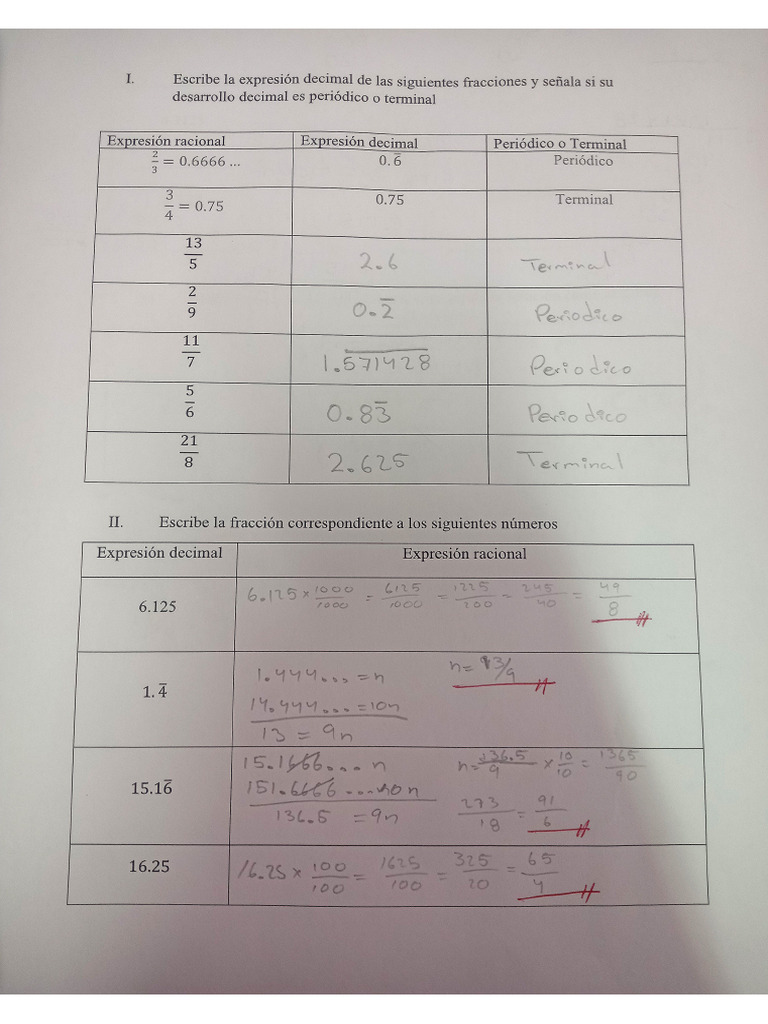 I. Escribe la expresión decimal de las siguientes fracciones y señala si su
desarrollo decimal es periódico o terminal
Expresión racional Expresión decimal Periódico o Terminal
2/3 = 0.6666 ... 0.6̅ Periódico
3/4 = 0.75 0.75 Terminal
13/5 2.6 Terminal
2/9 0.2̅ Periodico
11/7 1.5̅7̅1̅4̅2̅8̅ Periodico
5/6 0.83̅ Periodico
21/8 2.625 Terminal
II. Escribe la fracción correspondiente a los siguientes números
Expresión decimal Expresión racional
6.125 6.125 × 1000/1000 = 6125/1000 = 1225/200 = 245/40 = 49/8
1.4̅ 1.444... = n n = 13/9
14.444... = 10n
13 = 9n
15.16̅ 15.1666... n n = 136.5/9 × 10/10 = 1365/90
151.6666 ... 10n
136.5 = 9n 273/18 = 91/6
16.25 16.25 × 100/100 = 1625/100 = 325/20 = 65/4